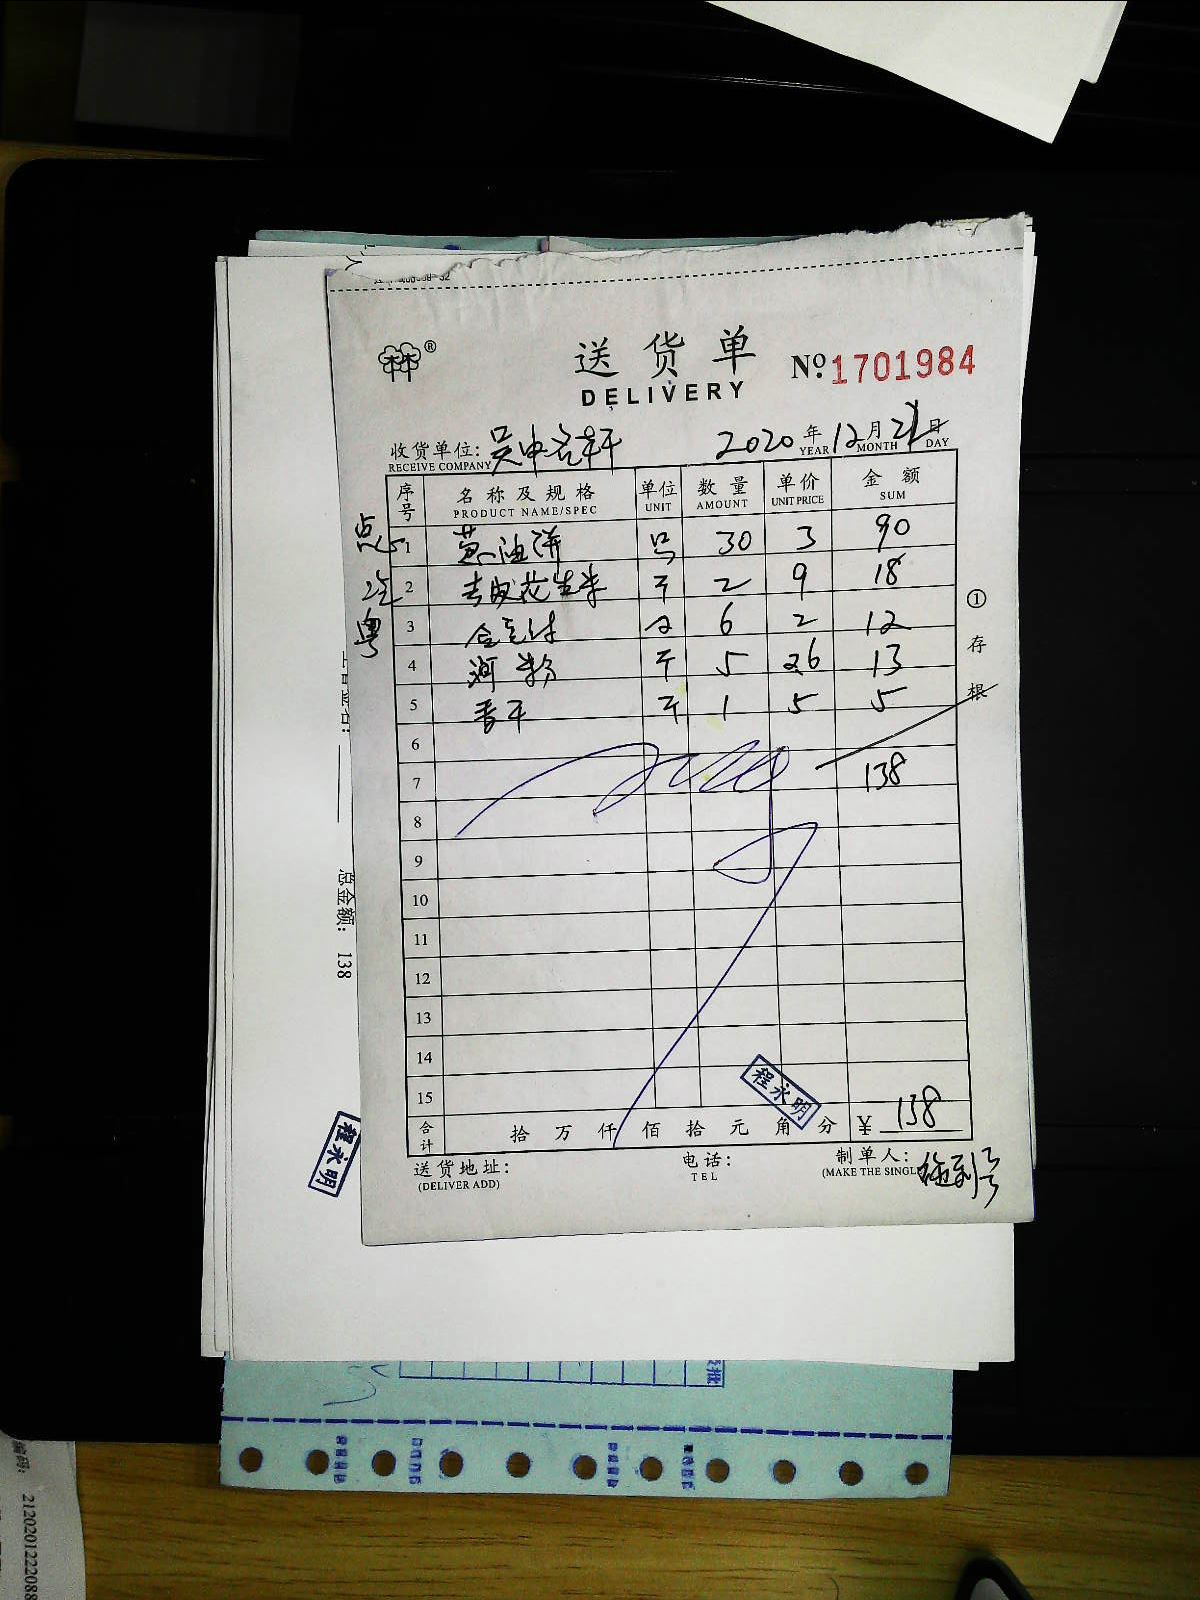 送货单
DELIVERY
№ 1701984
收货单位:
RECEIVE COMPANY
2020 年 12 月 21 日
YEAR MONTH DAY
序号 名称及规格 单位 数量 单价 金额
PRODUCT NAME/SPEC UNIT AMOUNT UNIT PRICE SUM
1 葱油饼 只 30 3 90
2 去皮花生米 斤 2 9 18
3 6 2 12
4 河粉 斤 5 2.6 13
5 斤 1 5 5
6
7 138
8
9
10
11
12
13
14
15
合计 拾 万 仟 佰 拾 元 角 分 ¥ 138
送货地址:
(DELIVER ADD)
电话:
TEL
制单人:
(MAKE THE SINGLE
①存根
程永明
程永明
总金额: 138
编码: 212020122208